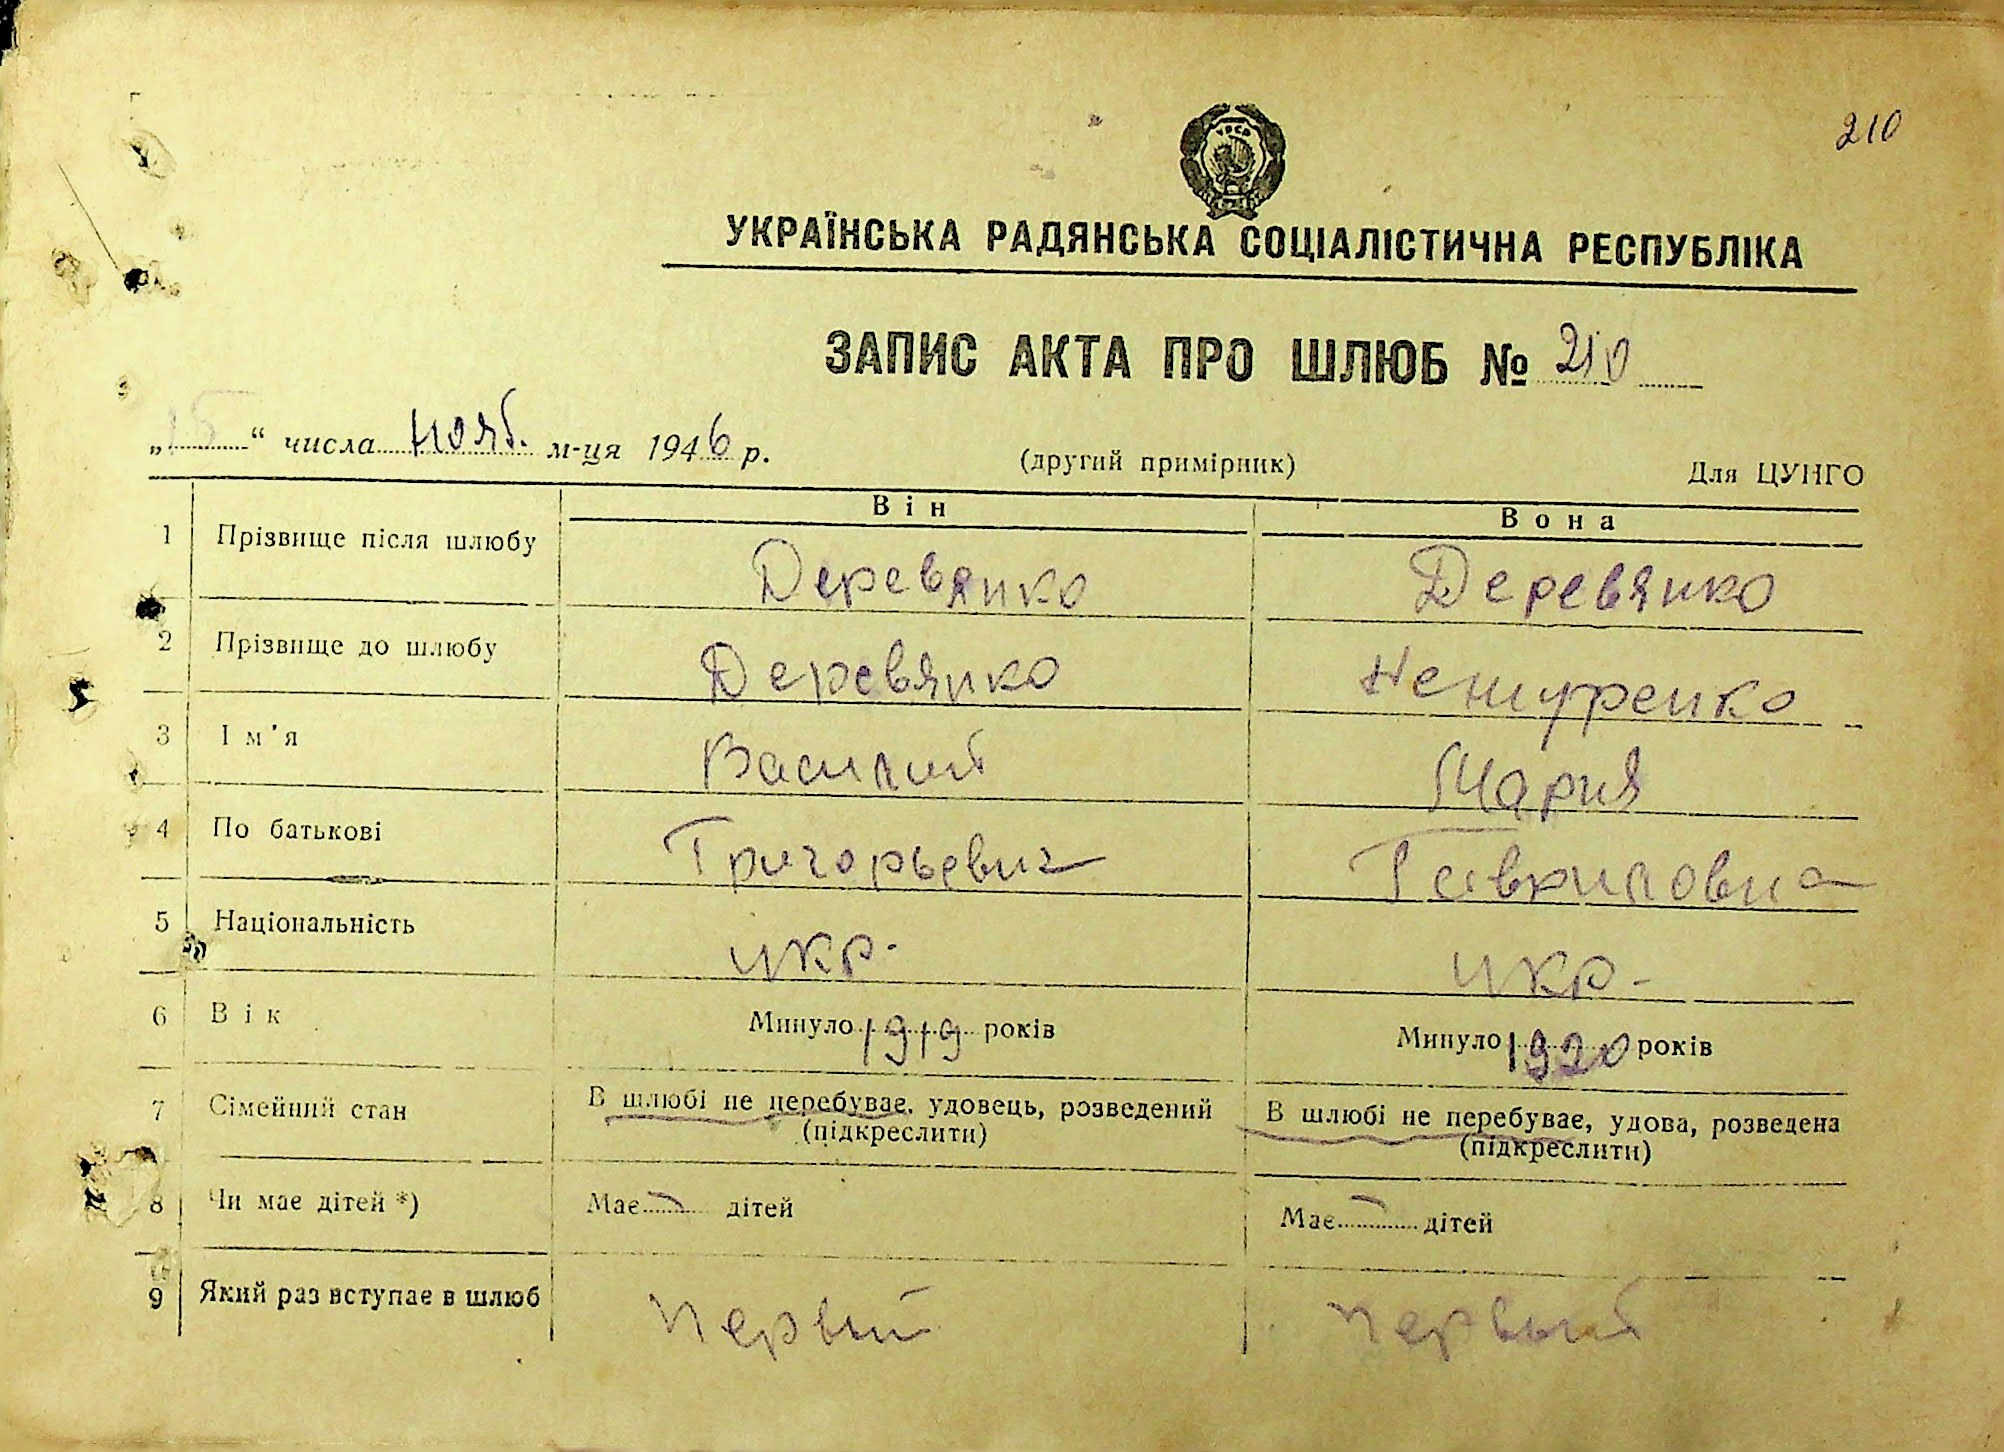 210
УРСР
УКРАЇНСЬКА РАДЯНСЬКА СОЦІАЛІСТИЧНА РЕСПУБЛІКА
ЗАПИС АКТА ПРО ШЛЮБ № 210
„15“ числа нояб. м-ця 1946 р. (другий примірник) Для ЦУНГО
Він Вона
1 Прізвище після шлюбу Деревянко Деревянко
2 Прізвище до шлюбу Деревянко
3 Ім'я Василий Мария
4 По батькові Григорьевич Гавриловна
5 Національність укр. укр.
6 Вік Минуло 1919 років Минуло 1920 років
7 Сімейний стан В шлюбі не перебуває, удовець, розведений В шлюбі не перебуває, удова, розведена
(підкреслити) (підкреслити)
8 Чи має дітей *) Має — дітей Має — дітей
9 Який раз вступає в шлюб Первый первый